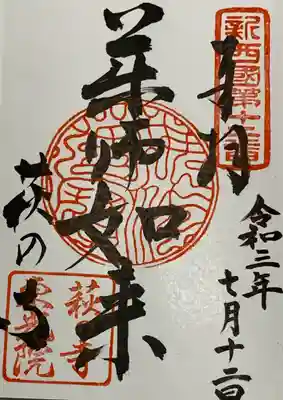 新西國第十二番
奉拝
令和三年
七月十二日
薬師如来
萩の寺
萩寺
東光院